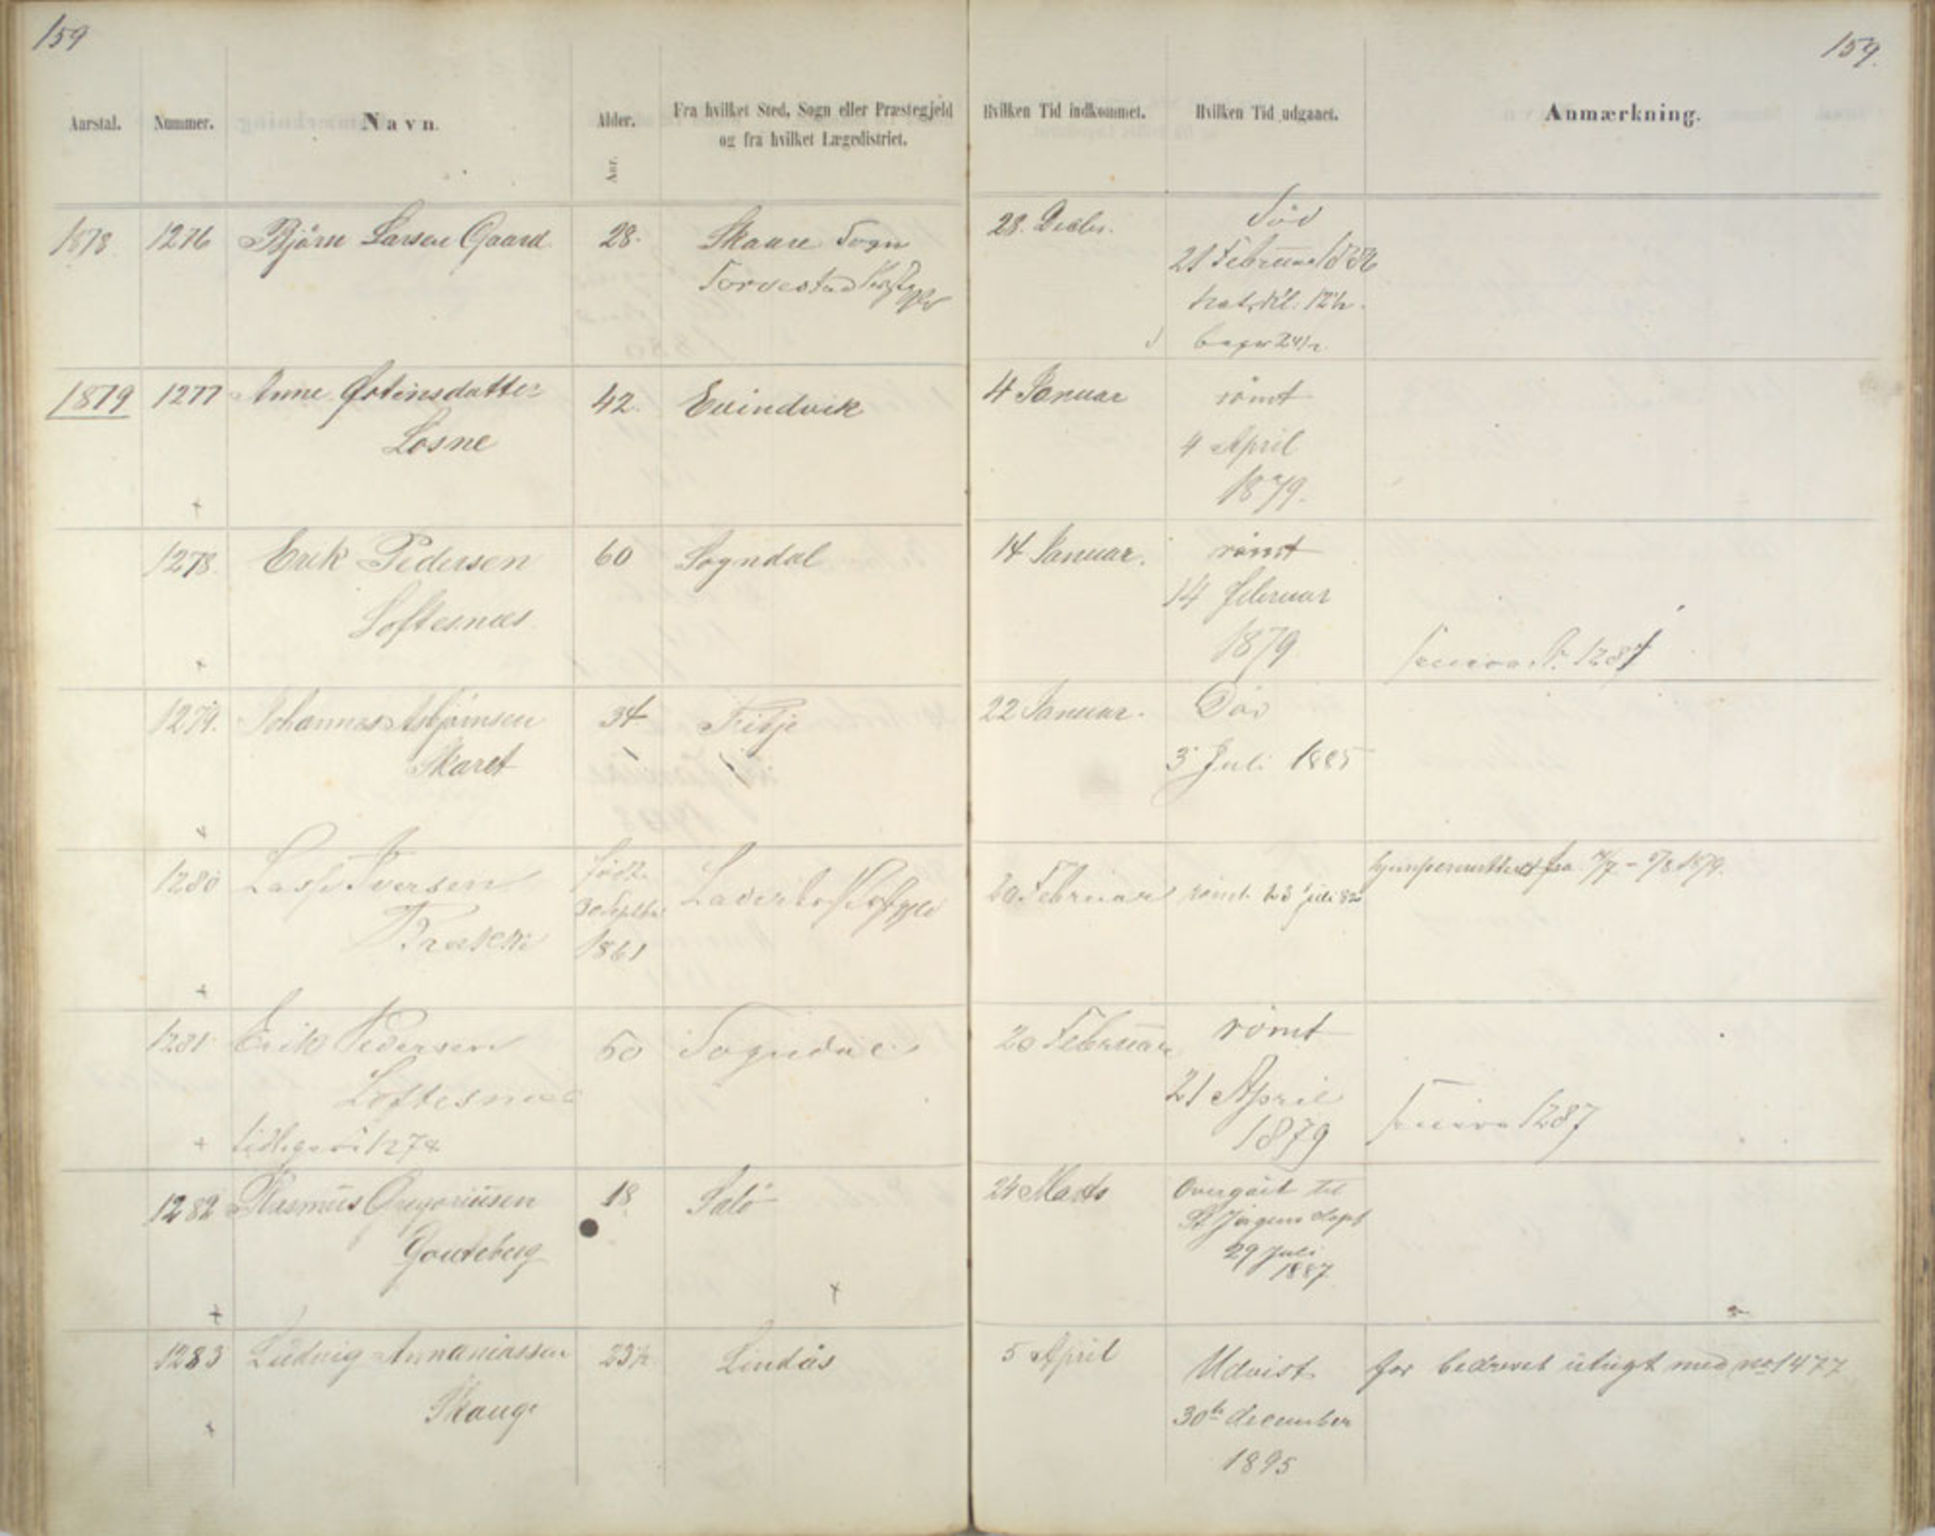 159
159.
Aarstal.
Nummer.
Navn.
Alder.
Aar.
Fra hvilket Sted, Sogn eller Præstegjeld
og fra hvilket Lægedistrict.
Hvilken Tid indkommet.
Hvilken Tid udgaaet.
Anmærkning.
1878 1276 Bjørn Larsen Gaard 28. Skaare Sogn 28. Decbr. Død
Torvestad 21 Februar 1886
1879 1277 Anne Østensdatter 42. Evindvik 4 Januar rømt
Losne 4 April
1879.
1278. Erik Pedersen 60 Sogndal 14 Januar. rømt
Loftesnæs 14 februar
1879 1287
1279. Johannes Asbjørnsen 34 Fitje 22 Januar. Død
Skaret 3 Juli 1885
1280 Lasse Iversen født 20 Februar rømt 23 juli 82
30 Septbr
1861
1281 Erik Pedersen 60 Sogndal 20 Februar rømt
Loftesnæs 21 April
1879 1287
1282 Rasmus Gregoriusen 18 24 Marts Overgået til
St. Jørgens Hospt
29 Juli
1887
1283 Ludvig Annaniassen 23½ Lindås 5 April Udvist for bedrevet utugt med no 1477
Skauge 30te december
1895